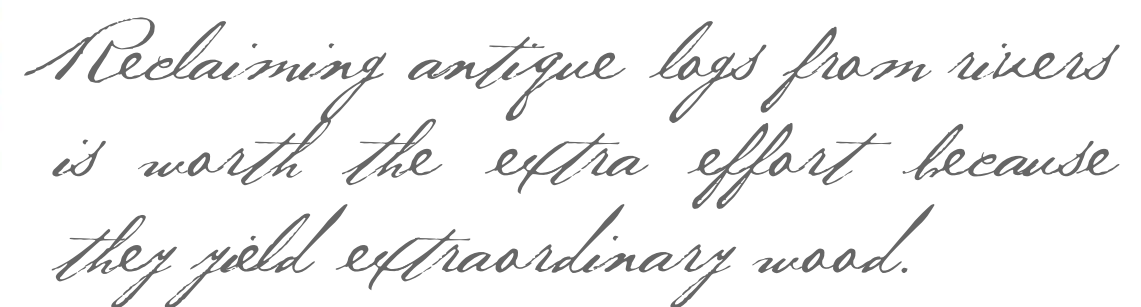 Reclaiming antique logs from rivers
is worth the extra effort because
they yield extraordinary wood.